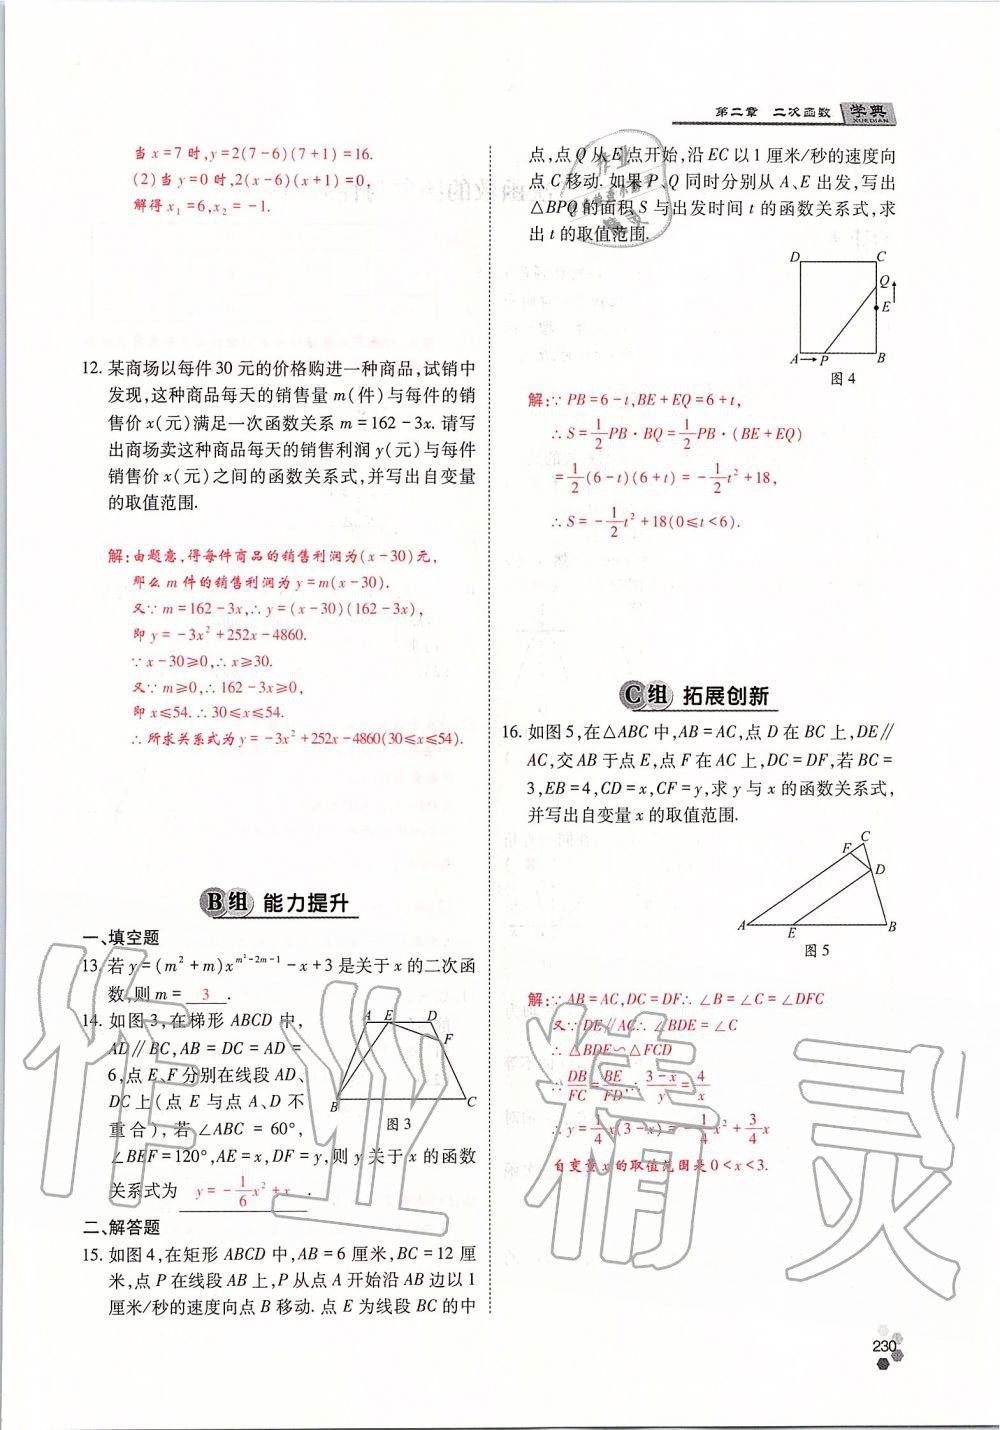 第二章 二次函数 学典
XUEDIAN
当x=7时,y=2(7-6)(7+1)=16.
(2)当y=0时,2(x-6)(x+1)=0,
解得x₁=6,x₂=-1.
12. 某商场以每件30元的价格购进一种商品,试销中
发现,这种商品每天的销售量m(件)与每件的销
售价x(元)满足一次函数关系m=162-3x. 请写
出商场卖这种商品每天的销售利润y(元)与每件
销售价x(元)之间的函数关系式,并写出自变量
的取值范围.
解:由题意,得每件商品的销售利润为(x-30)元,
那么m件的销售利润为y=m(x-30).
又∵m=162-3x,∴y=(x-30)(162-3x),
即y=-3x²+252x-4860.
∵x-30≥0,∴x≥30.
又∵m≥0,∴162-3x≥0,
即x≤54.∴30≤x≤54.
∴所求关系式为y=-3x²+252x-4860(30≤x≤54).
B组 能力提升
一、填空题
13. 若y=(m²+m)x^{m²-2m-1}-x+3是关于x的二次函
数,则m= 3 .
14. 如图3,在梯形ABCD中,
AD∥BC,AB=DC=AD=
6,点E、F分别在线段AD、
DC上(点E与点A、D不
重合),若∠ABC=60°,
∠BEF=120°,AE=x,DF=y,则y关于x的函数
关系式为 y=-1/6x²+x .
A E D
F
B C
图3
二、解答题
15. 如图4,在矩形ABCD中,AB=6厘米,BC=12厘
米,点P在线段AB上,P从点A开始沿AB边以1
厘米/秒的速度向点B移动. 点E为线段BC的中
点,点Q从E点开始,沿EC以1厘米/秒的速度向
点C移动. 如果P、Q同时分别从A、E出发,写出
△BPQ的面积S与出发时间t的函数关系式,求
出t的取值范围.
D C
Q
E
A P B
图4
解:∵PB=6-t,BE+EQ=6+t,
∴S=1/2PB·BQ=1/2PB·(BE+EQ)
=1/2(6-t)(6+t)=-1/2t²+18,
∴S=-1/2t²+18(0≤t<6).
C组 拓展创新
16. 如图5,在△ABC中,AB=AC,点D在BC上,DE∥
AC,交AB于点E,点F在AC上,DC=DF,若BC=
3,EB=4,CD=x,CF=y,求y与x的函数关系式,
并写出自变量x的取值范围.
C
F
D
A E B
图5
解:∵AB=AC,DC=DF∴∠B=∠C=∠DFC
又∵DE∥AC∴∠BDE=∠C
∴△BDE∽△FCD
∴DB/FC=BE/FD∴3-x/y=4/x
∴y=1/4x(3-x)=-1/4x²+3/4x
自变量x的取值范围是0<x<3.
作业精灵
230